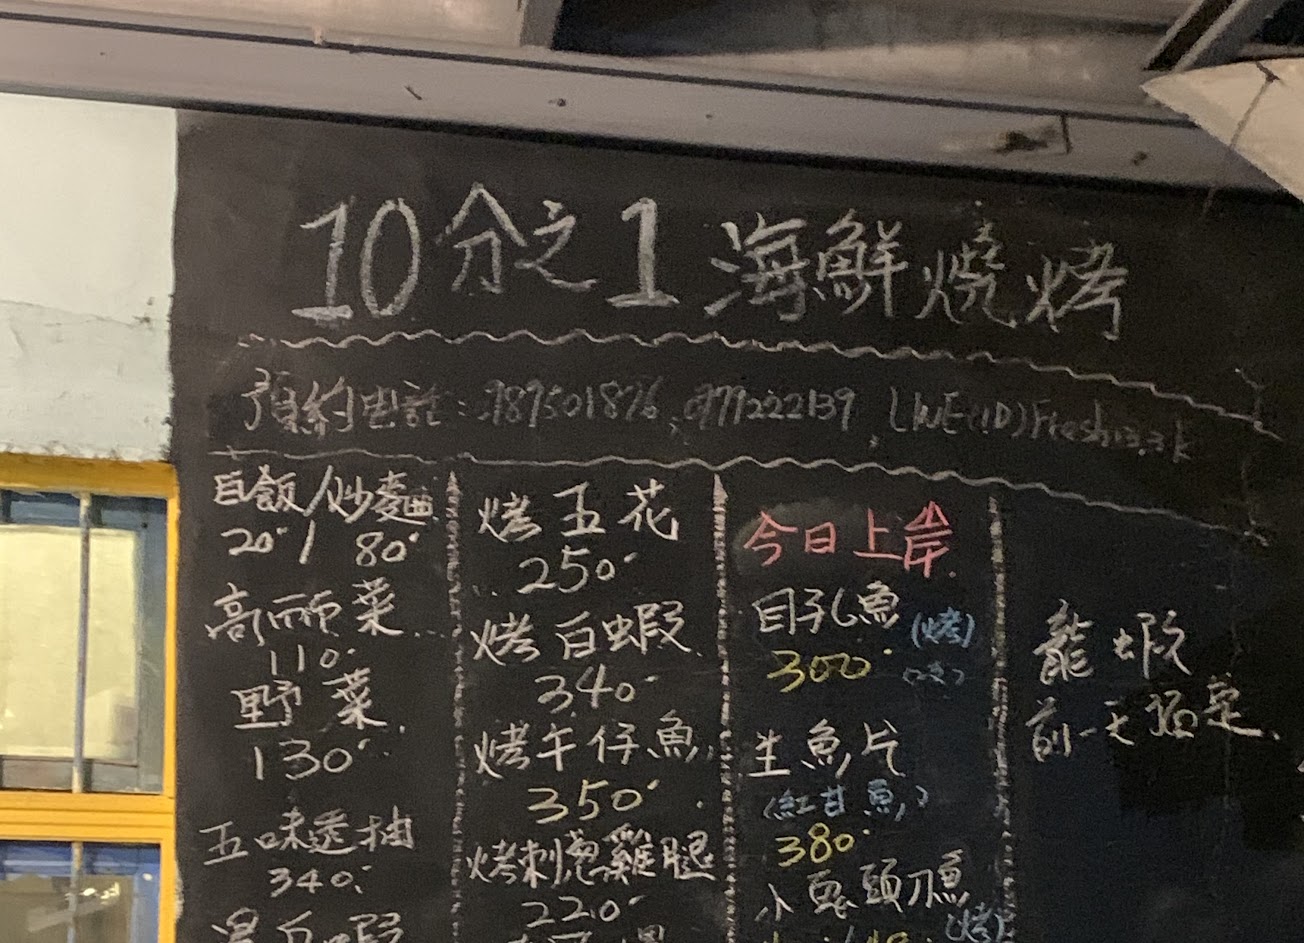 10分之1 海鮮燒烤
預約電話：0989501876、0979222139 LINE(ID)
白飯/炒麵
20/ 80
高麗菜
110
野菜
130
五味透抽
340
烤五花
250
烤白蝦
340
烤午仔魚
350
烤刺蔥雞腿
220
今日上岸
目孔魚 (烤)
300
生魚片
(紅甘魚)
380
(烤)
龍蝦
前一天預定